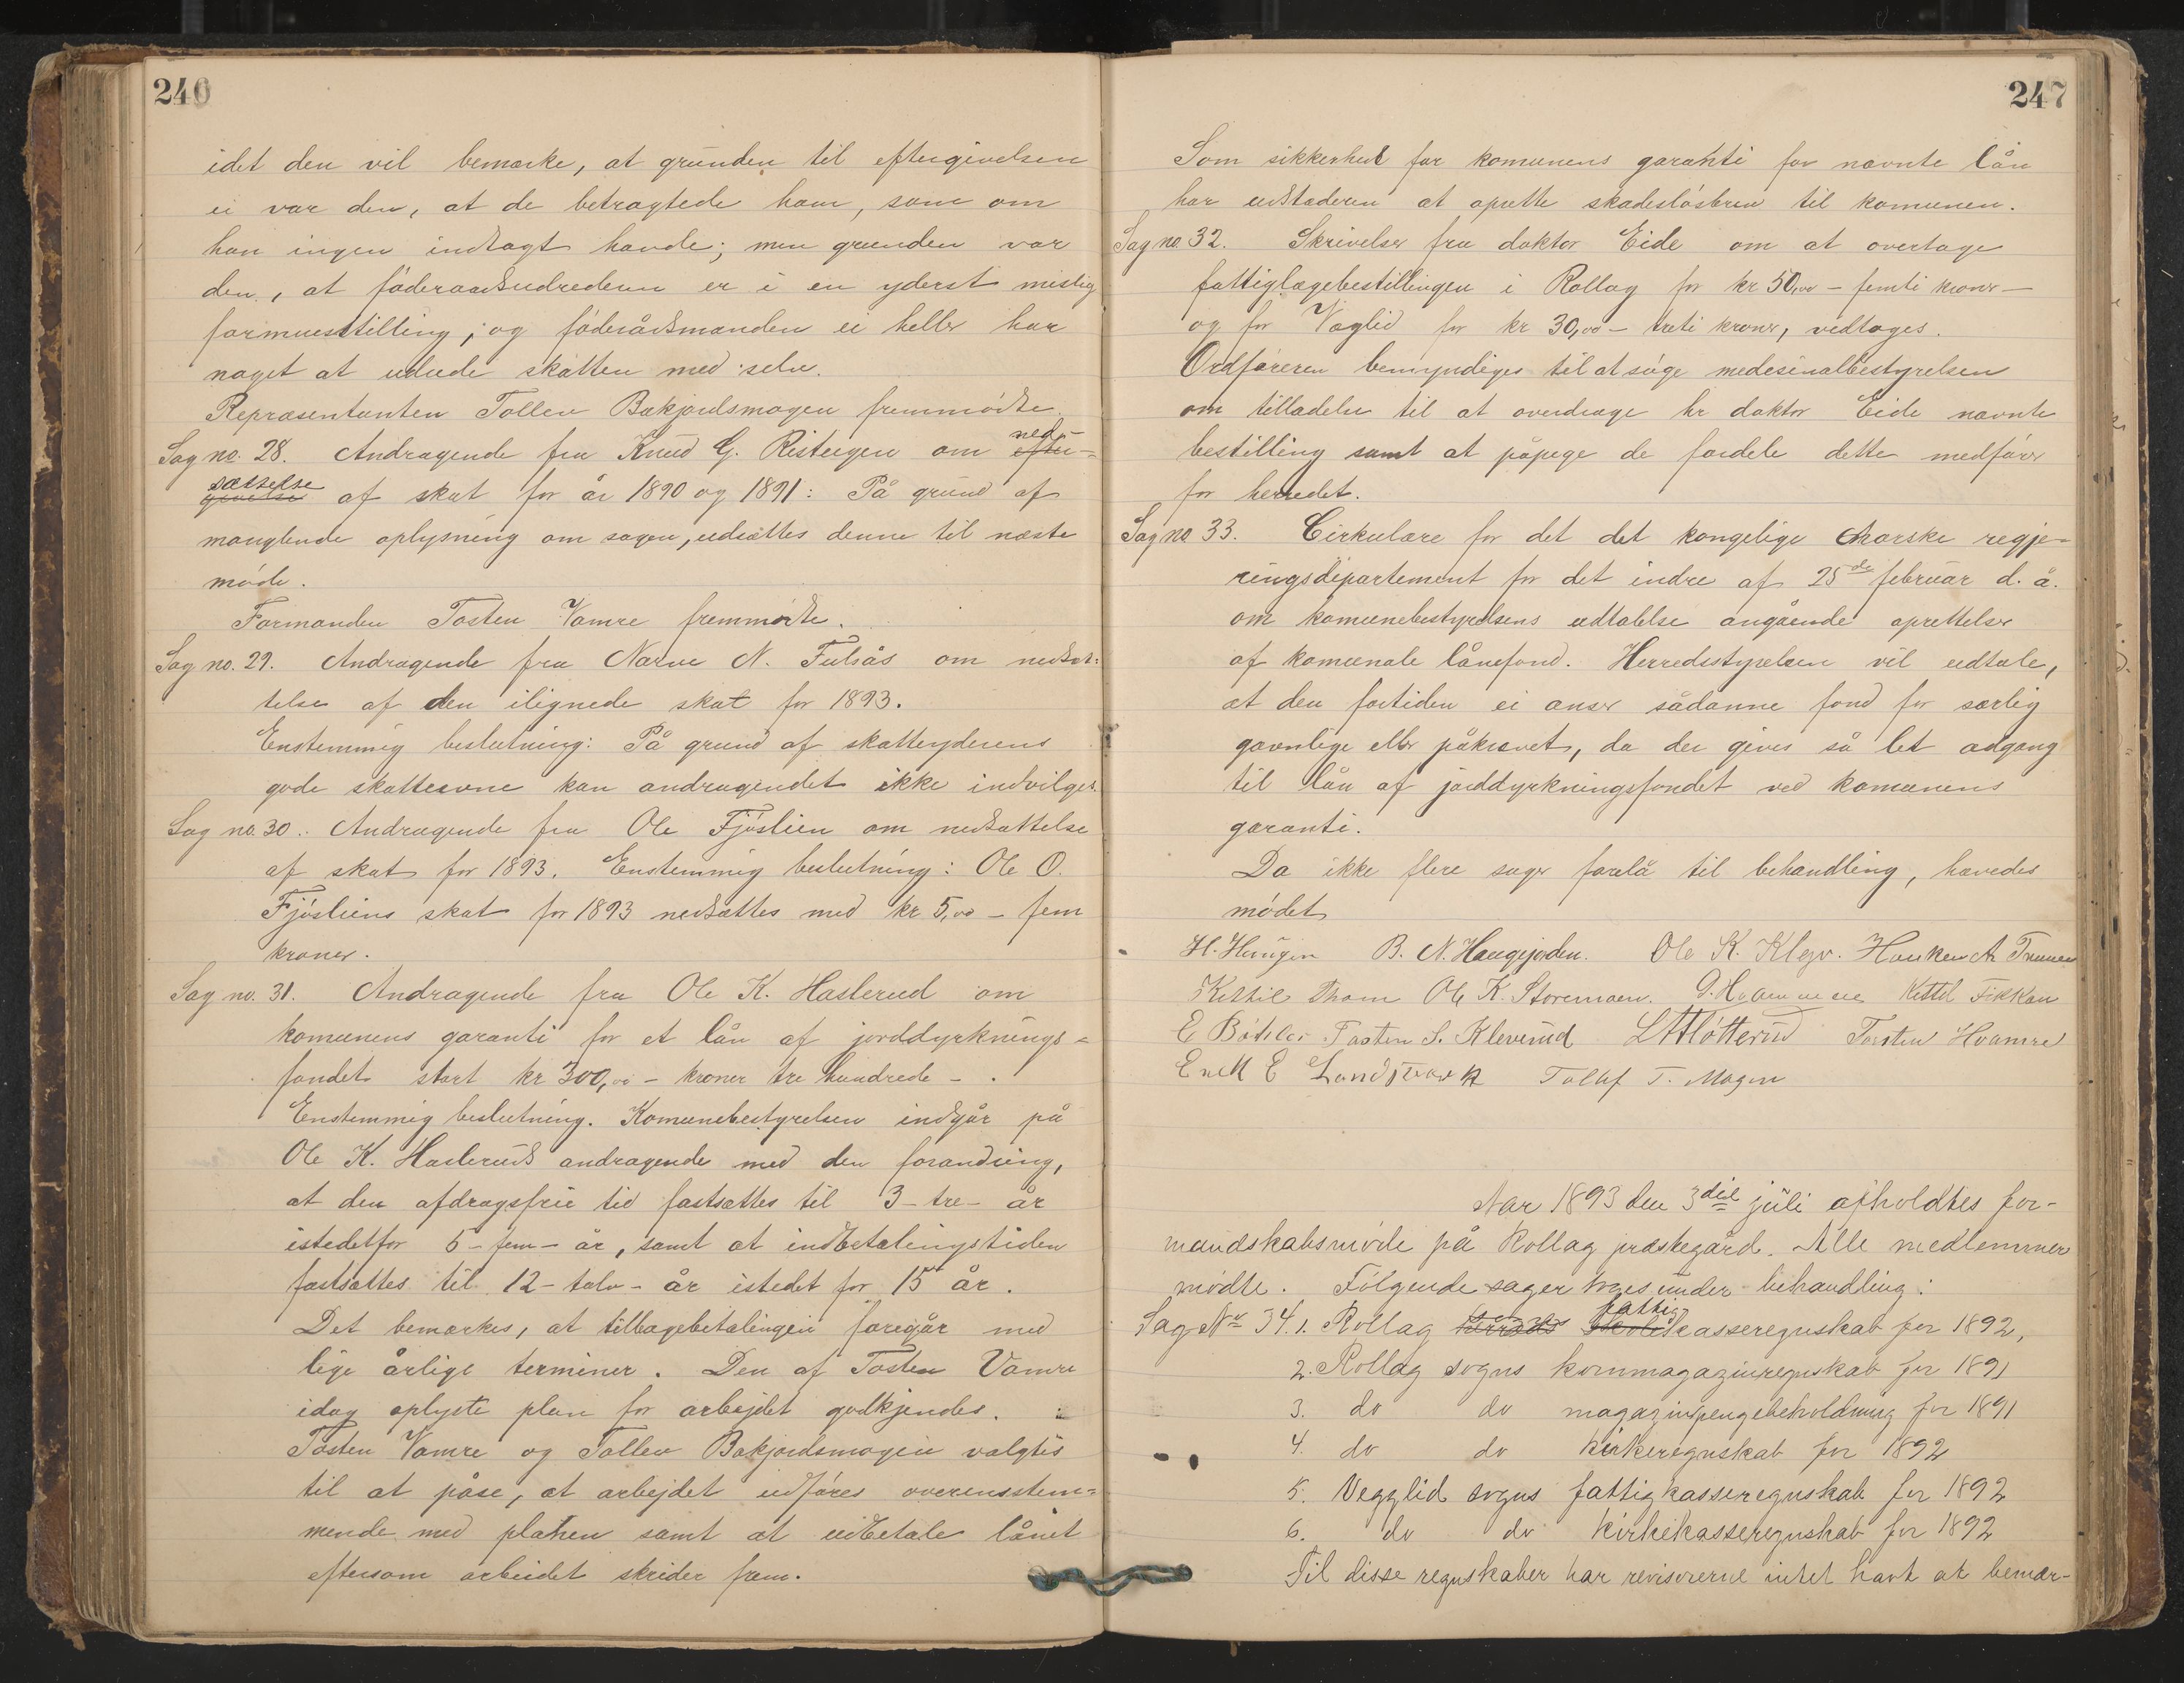 246
idet den vil bemærke, at grunden til eftergivelsen
ei var den, at de betragtede ham, som om
han ingen indtægt havde; men grunden var
den, at föderaadsudrederen er i en yderst mislig
formuesstilling, og föderådsmanden ei heller har
noget at udrede skatten med selv.
Repræsentanten Tollev Bakjordsmogen fremmödte.
Sag no. 28. Andragende fra Knud G. Risteigen om ned-
sættelse af skat for år 1890 og 1891: På grund af
manglende oplysning om sagen, udsættes denne til næste
möde.
Formanden Tosten Vamre fremmödte.
Sag no. 29. Andragende fra Narve N. Fulsås om nedsæt-
telse af den ilignede skat for 1893.
Enstemmig beslutning: På grund af skatteyderens
gode skatteevne kan andragendet ikke indvilges.
Sag no. 30. Andragende fra Ole Fjöslien om nedsættelse
af skat for 1893. Enstemmig beslutning: Ole O.
Fjösliens skat for 1893 nedsættes med kr 5,00 - fem
kroner.
Sag no. 31. Andragende fra Ole K. Haslerud om
komunens garanti for et lån af jorddyrknings-
fondet stort kr 300,00 - kroner tre hundrede -.
Enstemmig beslutning. Komunebestyrelsen indgår på
Ole K. Hasleruds andragende med den forandring,
at den afdragsfrie tid fastsættes til 3 - tre - år
istedetfor 5 - fem - år, samt at indbetalingstiden
fastsættes til 12 - tolv - år istedet for 15 år.
Det bemærkes, at tilbagebetalingen foregår med
lige årlige terminer. Den af Tosten Vamre
idag oplyste plan for arbejdet godkjendes.
Tosten Vamre og Tollev Bakjordsmogen valgtes
til at påse, at arbejdet udföres overensstem-
mende med planen samt at udbetale lånet
eftersom arbeidet skrider frem.
247
Som sikkerhed for komunens garanti for nævnte lån
har udstederen at oprette skadeslösbrev til komunen.
Sag no. 32. Skrivelse fra doktor Eide om at overtage
fattiglægebestillingen i Rollag for kr 50,00 - femti kroner -
og for Væglid for kr 30,00 - treti kroner, vedtages.
Ordföreren bemyndiges til at söge medesinalbestyrelsen
om tilladelse til at overdrage hr doktor Eide nævnte
bestilling samt at påpege de fordele dette medförer
for herredet.
Sag no 33. Cirkulære for det det kongelige norske regje-
ringsdepartement for det indre af 25de februar d. å.
om komunebestyrelsens udtalelse angående oprettelse
af komunale lånefond. Herredsstyrelsen vil udtale,
at den fortiden ei anser sådanne fond for særlig
gavnlige eller påkrævet, da der gives så let adgang
til lån af jorddyrkningsfondet ved komunens
garanti.
Da ikke flere sager forelå til behandling, hævedes
mödet
H. Haugen B. N. Haugejorden. Ole K. Klegv. Haaken A Traaen
Kittil Thom Ole K. Storemoen. Kittil Fikkan
Tosten S. Kleverud Torsten Hvamre
E Landsværk Tollef T. Mogen
Aar 1893 den 3die juli afholdtes for-
mandskabsmöde på Rollag præstegård. Alle medlemmer
mödte. Fölgende sager toges under behandling:
Sag No 34. 1. Rollag sogns fattigkasseregnskab for 1892,
2. Rollag sogns kornmagazinregnskab for 1891
3. do do magazinpengebeholdning for 1891
4. do do kirkeregnskab for 1892
5. Vegglid sogns fattigkasseregnskab for 1892
6. do do kirkekasseregnskab for 1892
Til disse regnskaber har revisorerne intet havt at bemær-